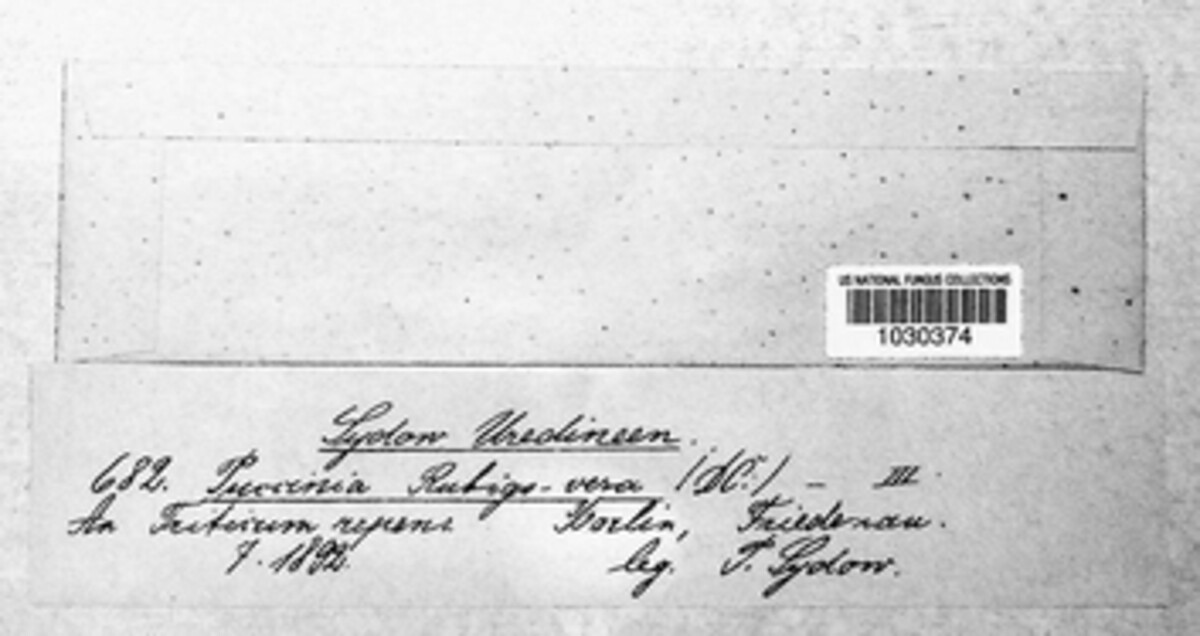 US NATIONAL FUNGUS COLLECTIONS
1030374
Sydow Uredineen.
682. Puccinia Rubigo-vera (DC.) – III
An Triticum repens Berlin, Friedenau.
7. 1892. leg. P. Sydow.